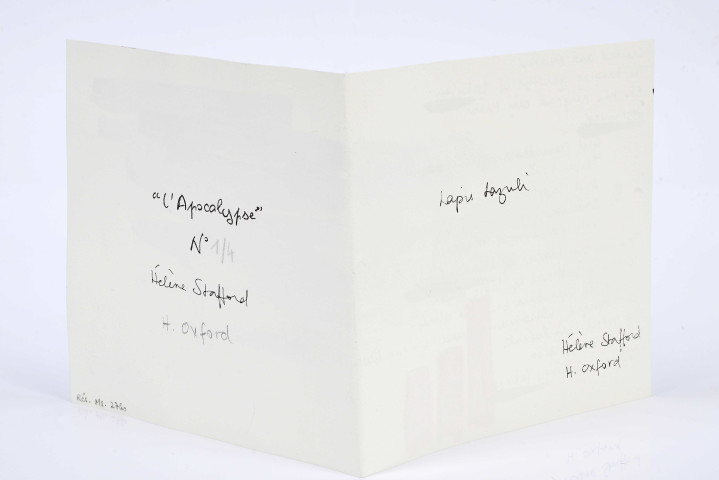 "l'Apocalypse"
N° 1/4
Hélène Stafford
H. Oxford
Rés. Ms.
Lapis Lazuli
Hélène Stafford
H. Oxford